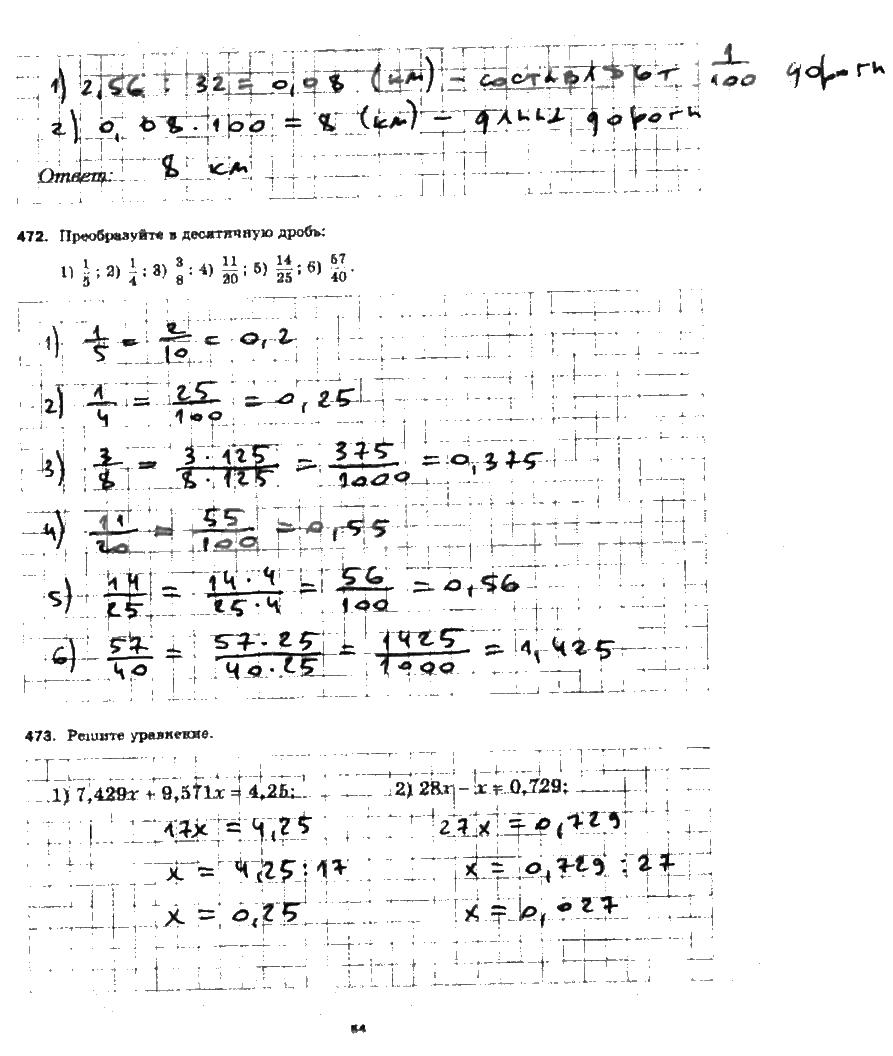 1) 2,56 : 32 = 0,08 (км) – составляют 1/100 дороги
2) 0,08 · 100 = 8 (км) – длина дороги
Ответ: 8 км
472. Преобразуйте в десятичную дробь:
1) 1/5; 2) 1/4; 3) 3/8; 4) 11/20; 5) 14/25; 6) 57/40.
1) 1/5 = 2/10 = 0,2
2) 1/4 = 25/100 = 0,25
3) 3/8 = 3·125/8·125 = 375/1000 = 0,375
4) 11/20 = 55/100 = 0,55
5) 14/25 = 14·4/25·4 = 56/100 = 0,56
6) 57/40 = 57·25/40·25 = 1425/1000 = 1,425
473. Решите уравнение.
1) 7,429x + 9,571x = 4,25; 2) 28x – x = 0,729;
17x = 4,25 27x = 0,729
x = 4,25 : 17 x = 0,729 : 27
x = 0,25 x = 0,027
54